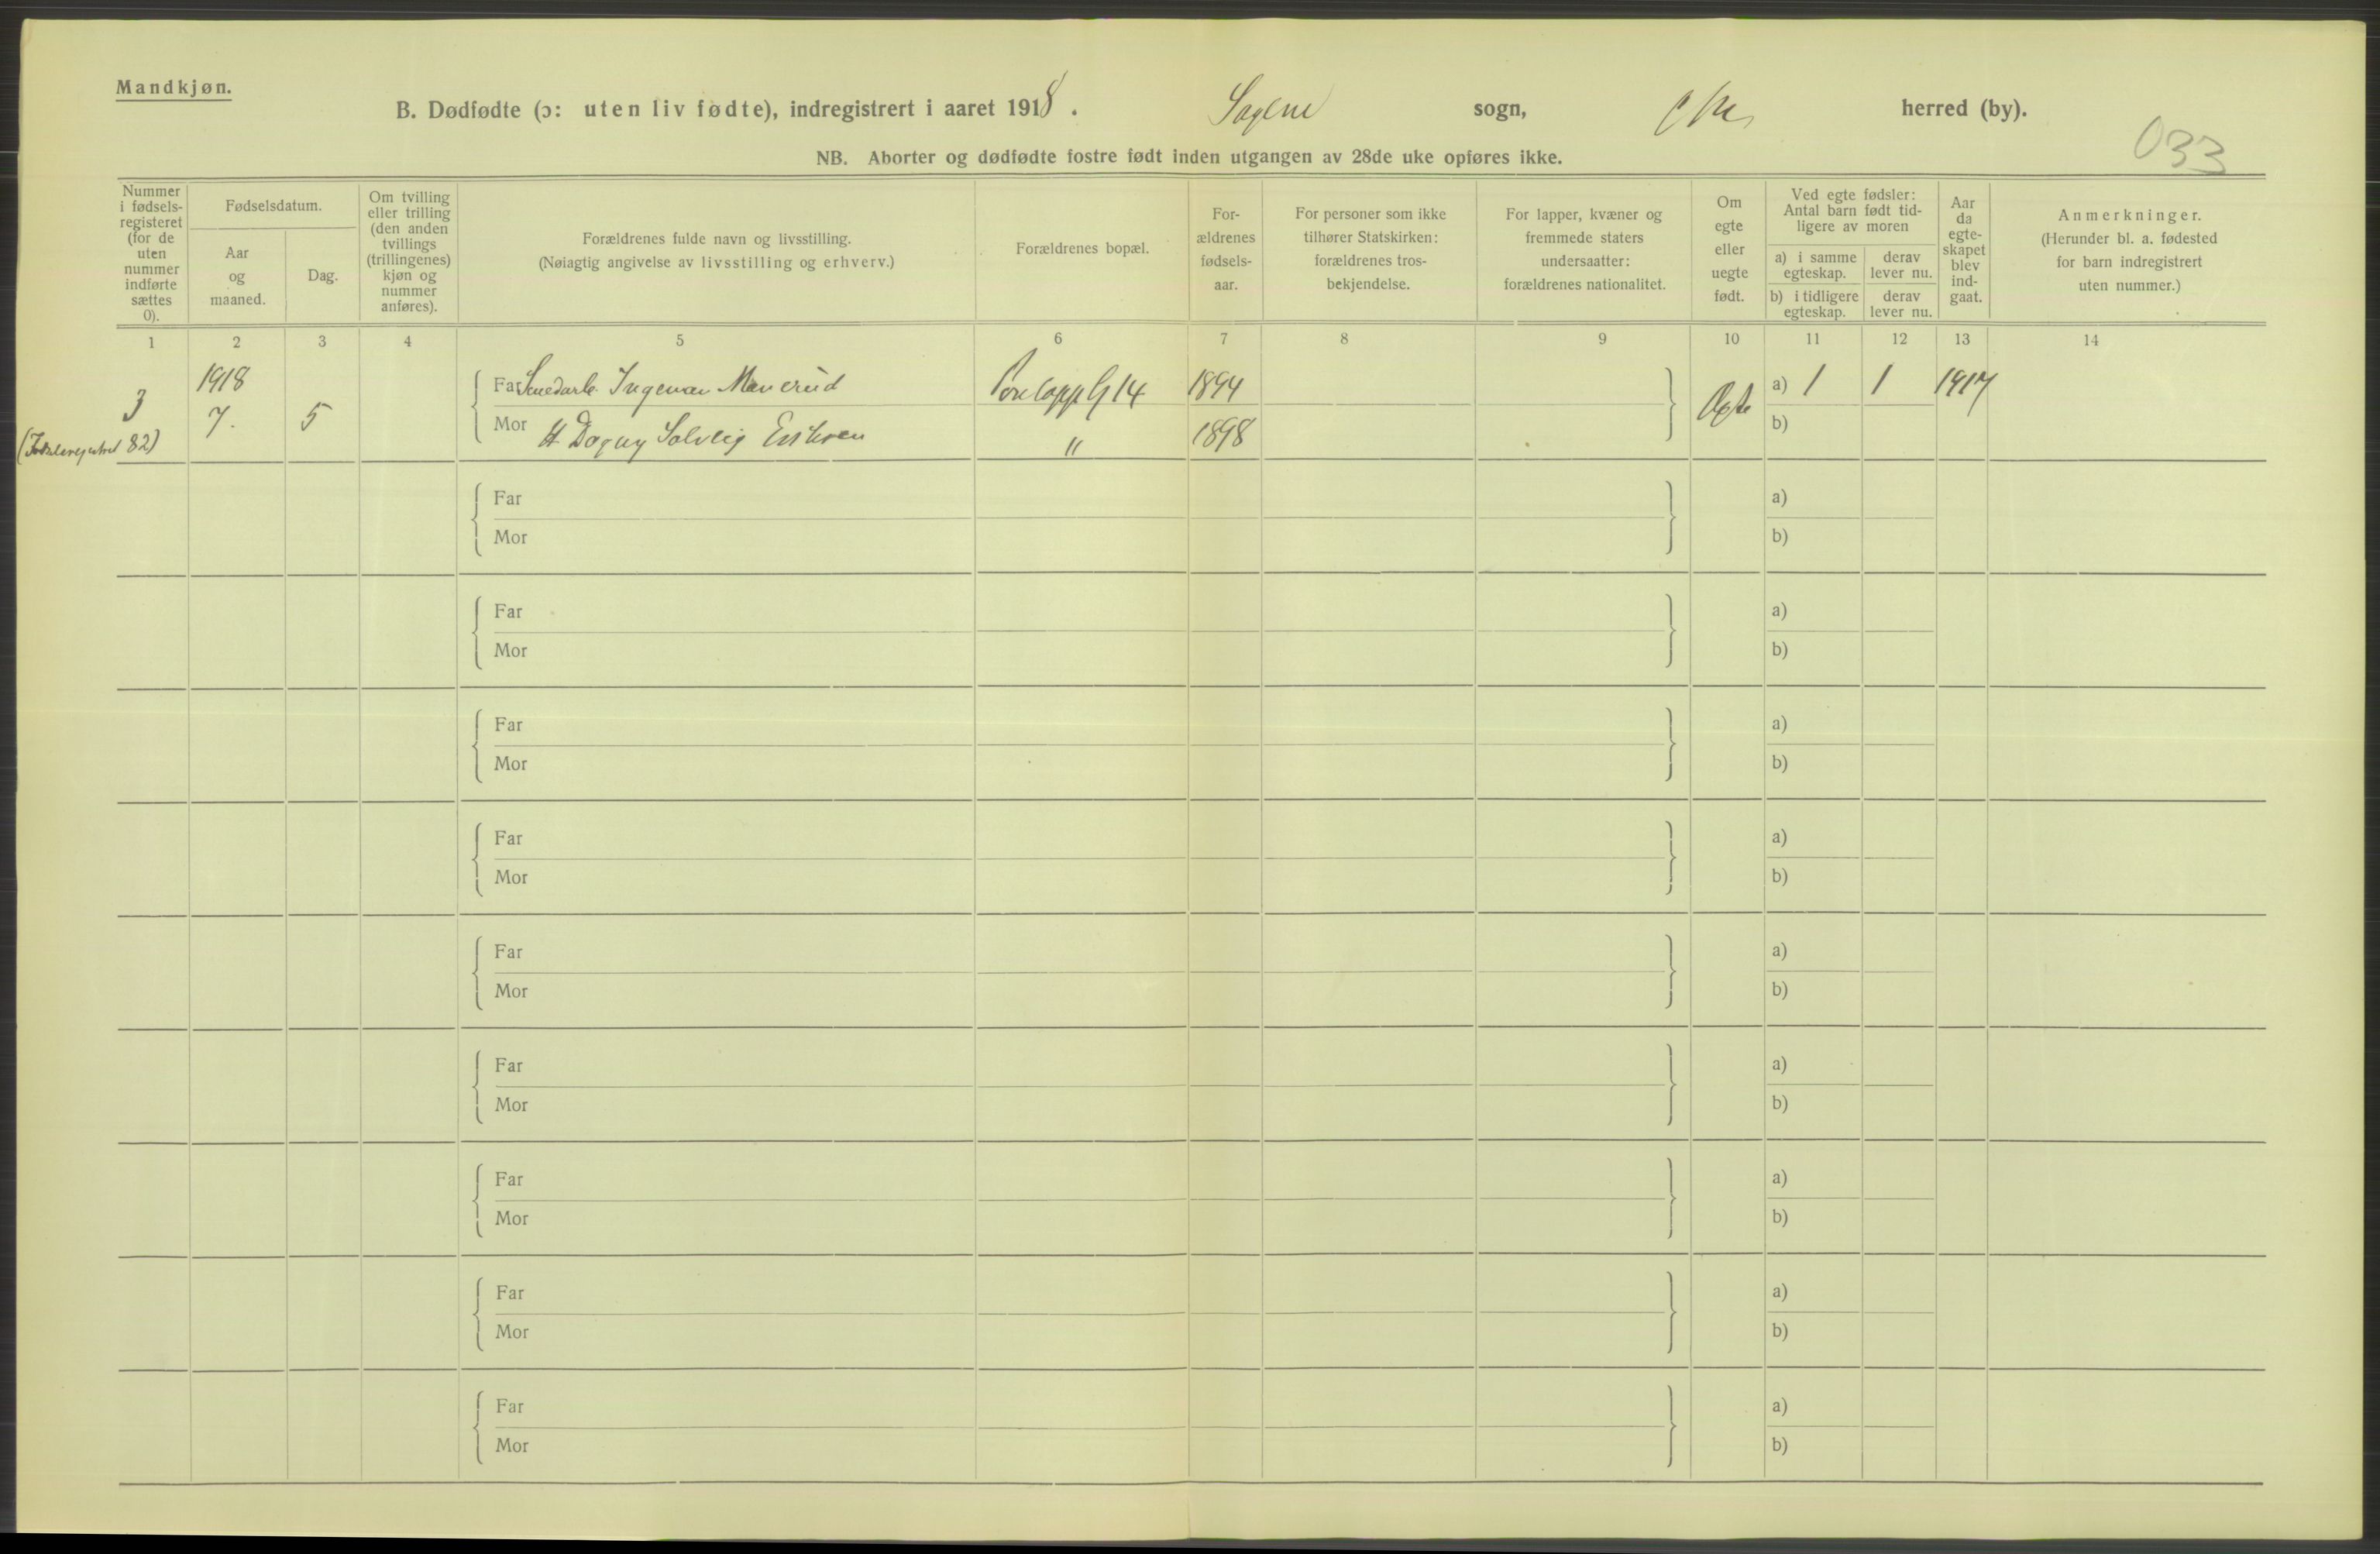 Mandkjøn.
B. Dødfødte (ɔ: uten liv fødte), indregistrert i aaret 1918. Sagene sogn, herred (by).
033
NB. Aborter og dødfødte fostre født inden utgangen av 28de uke opføres ikke.
Nummer i fødsels-registeret (for de uten nummer indførte sættes 0).
Fødselsdatum.
Aar og maaned.
Dag.
Om tvilling eller trilling (den anden tvillings (trillingenes) kjøn og nummer anføres).
Forældrenes fulde navn og livsstilling.
(Nøiagtig angivelse av livsstilling og erhverv.)
Forældrenes bopæl.
For-ældrenes fødsels-aar.
For personer som ikke tilhører Statskirken: forældrenes tros-bekjendelse.
For lapper, kvæner og fremmede staters undersaatter: forældrenes nationalitet.
Om egte eller uegte født.
Ved egte fødsler: Antal barn født tid-ligere av moren
a) i samme egteskap.
derav lever nu.
b) i tidligere egteskap.
derav lever nu.
Aar da egte-skapet blev ind-gaat.
Anmerkninger.
(Herunder bl. a. fødested for barn indregistrert uten nummer.)
1 2 3 4 5 6 7 8 9 10 11 12 13 14
3 1918 7. 5 Far Smedarb. Ingeman 14 1894 Egte a) 1 1 1917
(Fødselsregistret 82) Mor H. Dagny Solveig " 1898 b)
Far a)
Mor b)
Far a)
Mor b)
Far a)
Mor b)
Far a)
Mor b)
Far a)
Mor b)
Far a)
Mor b)
Far a)
Mor b)
Far a)
Mor b)
Far a)
Mor b)